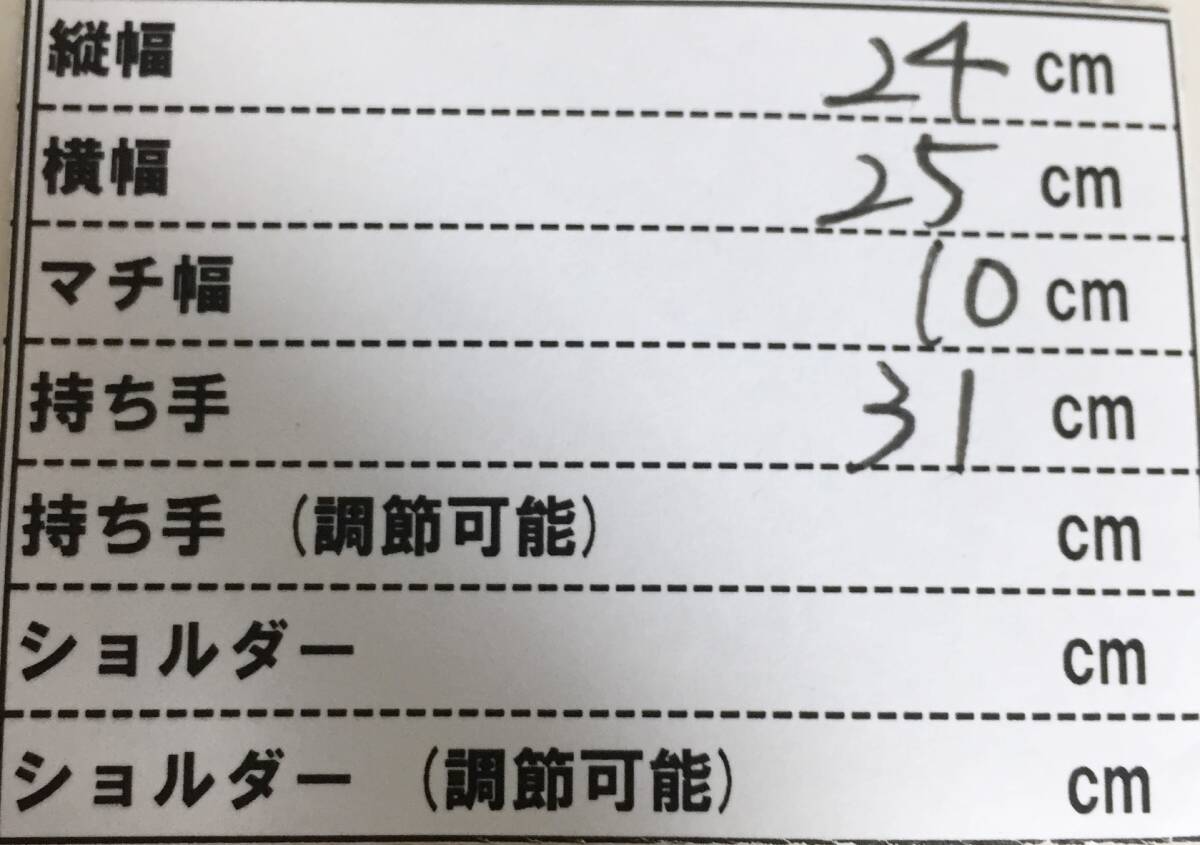 縦幅 24 cm
横幅 25 cm
マチ幅 10 cm
持ち手 31 cm
持ち手 (調節可能) cm
ショルダー cm
ショルダー (調節可能) cm